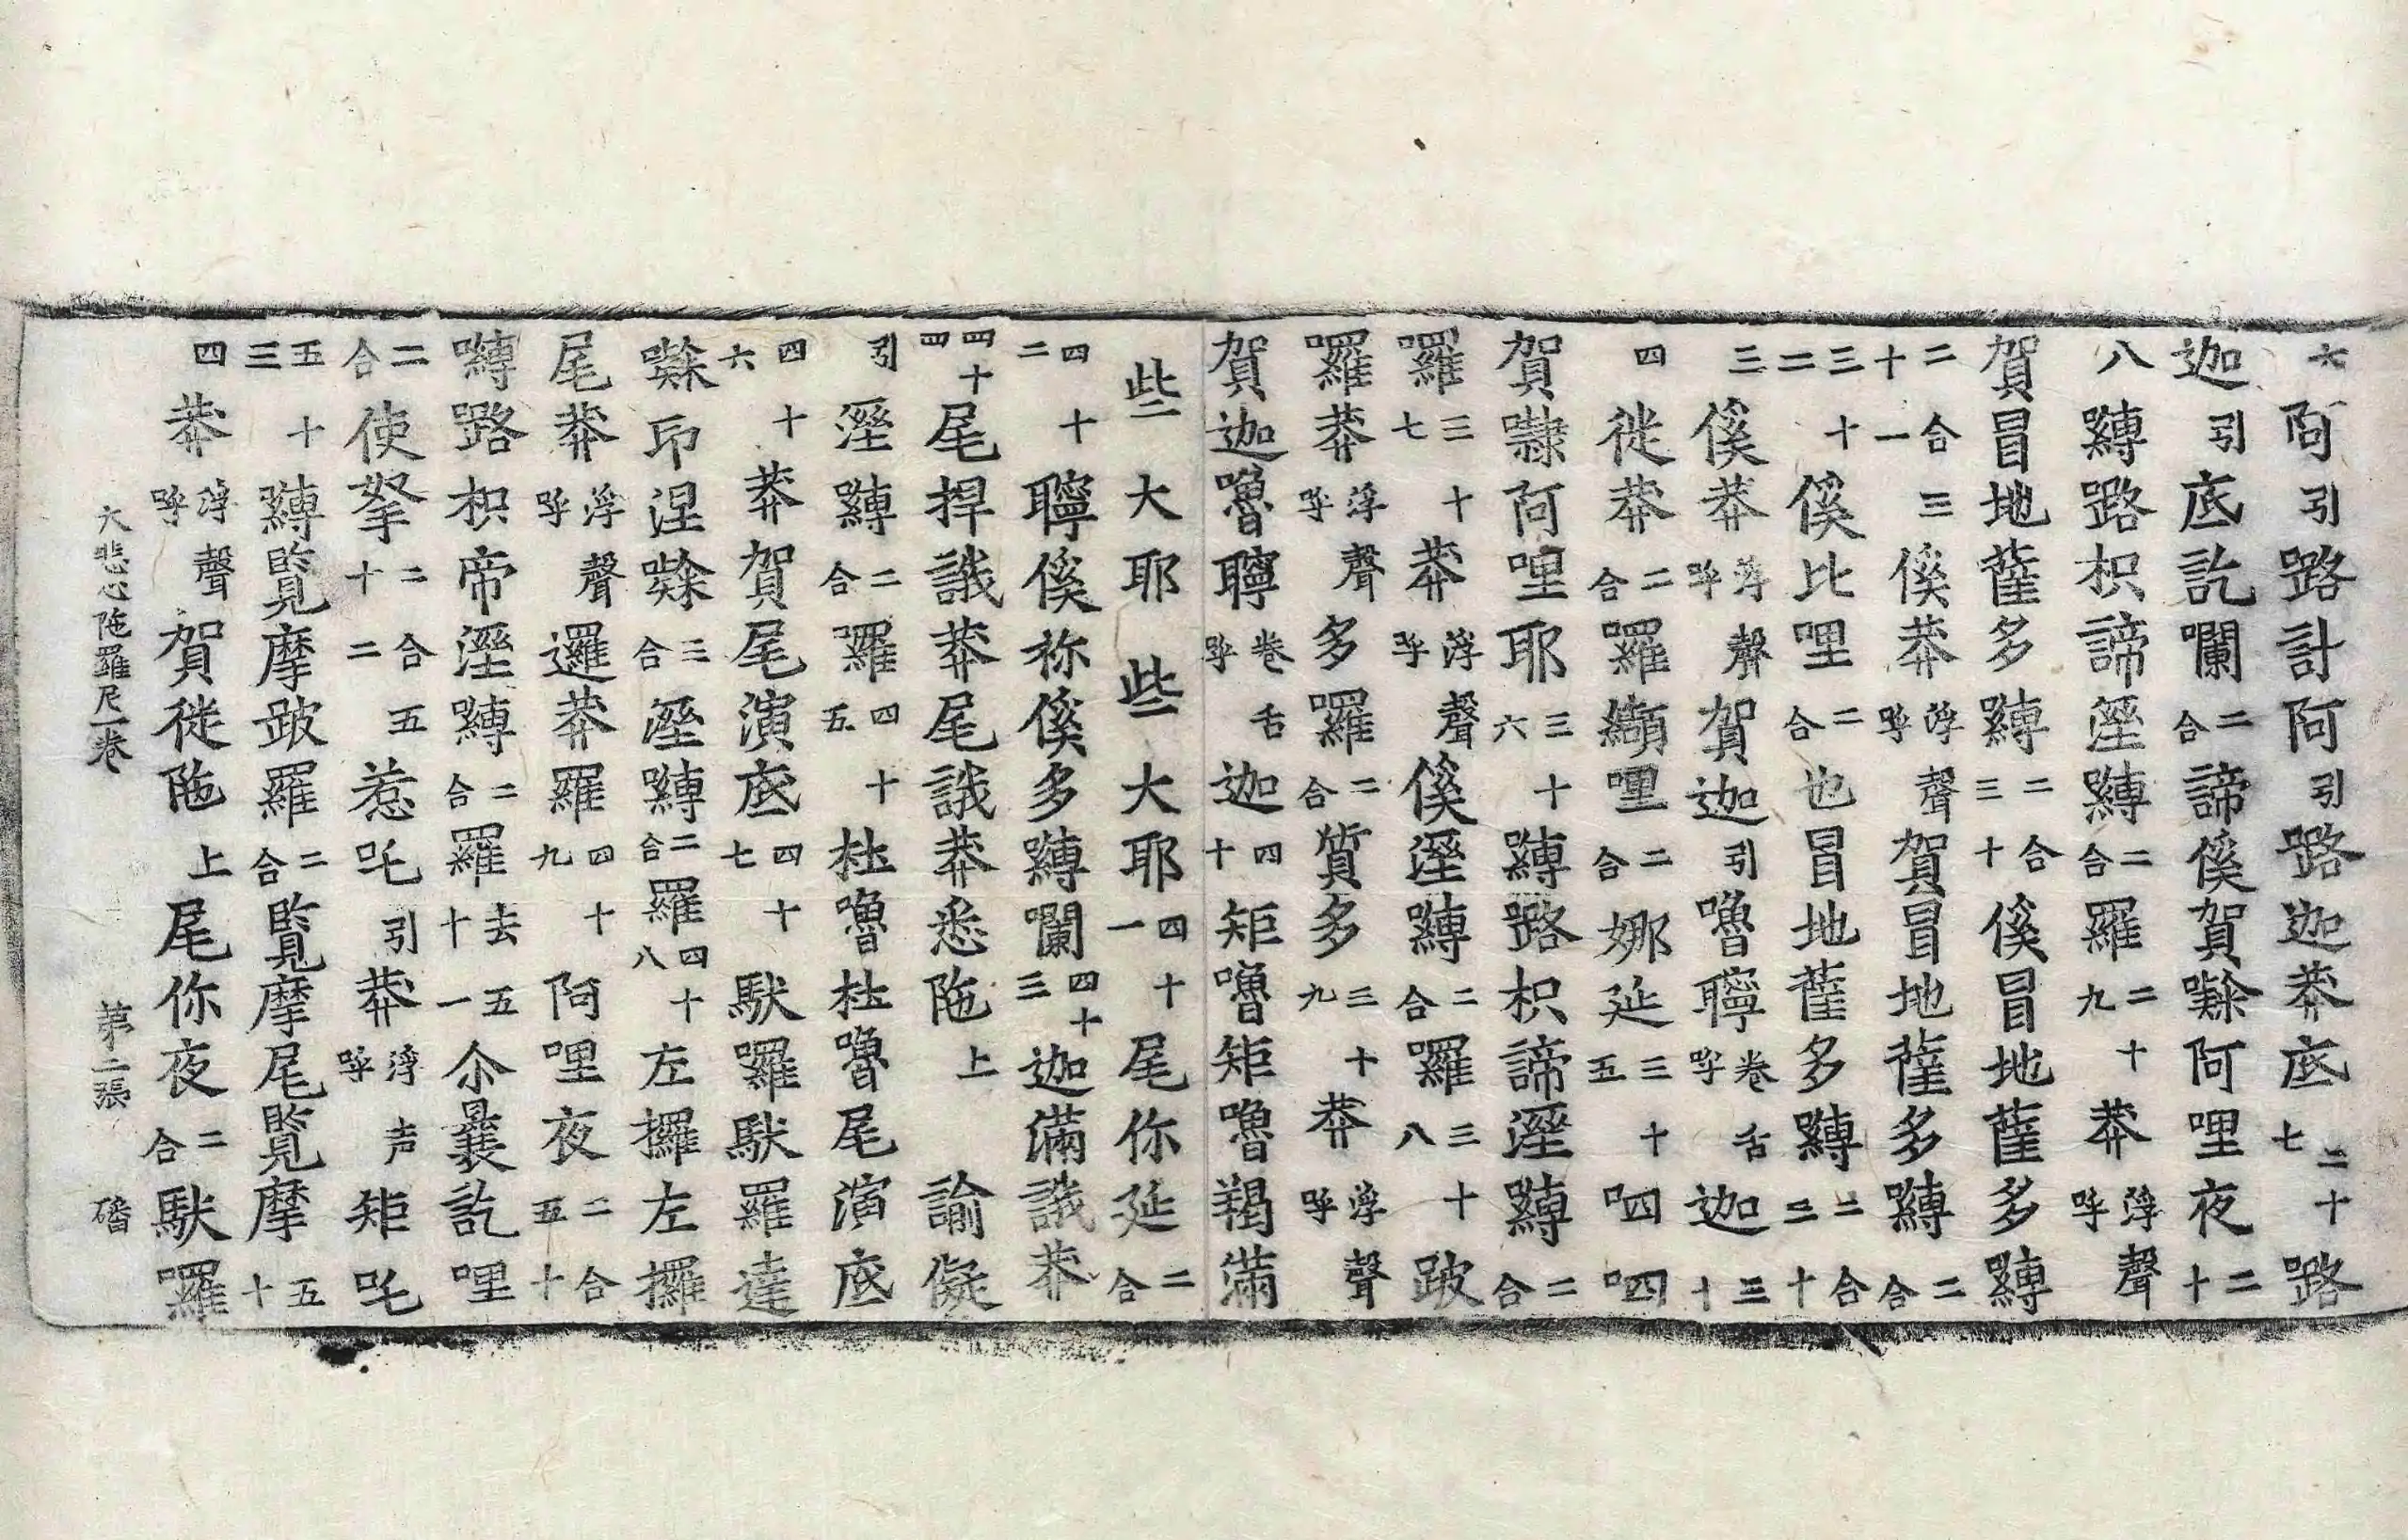 六阿引路計阿引路迦莽底二十七路
迦引底訖囕二合諦傒賀𠿒阿哩夜二十
八嚩路枳諦溼嚩二合羅二十九莽浮聲呼
賀冒地薩多嚩二合三十傒冒地薩多嚩
二合三十一傒莽浮聲呼賀冒地薩多嚩二合
三十二傒比哩二合也冒地薩多嚩二合三十
三傒莽浮聲呼賀迦引嚕聹卷舌呼迦三十
四徙莽二合羅纈哩二合娜延三十五呬呬
賀㘑阿哩耶三十六嚩路枳諦溼嚩二合
羅三十七莽浮聲呼傒溼嚩二合羅三十八跛
羅莽浮聲呼多羅二合質多三十九莽浮聲呼
賀迦嚕聹卷舌呼迦四十矩嚕矩嚕羯滿
些大耶些大耶四十一尾你延二合
四十二聹傒祢傒多嚩囕四十三迦滿誐莽
四十四尾捍誐莽尾誐莽悉陁上諭儗
引溼嚩二合羅四十五杜嚕杜嚕尾演底
四十六莽賀尾演底四十七馱羅馱羅達
𠿒印涅𠿒三合溼嚩二合羅四十八左攞左攞
尾莽浮聲呼邏莽羅四十九阿哩夜二合五十
嚩路枳帝溼嚩二合羅去五十一尒曩訖哩
二合使拏二合十二五惹吒引莽浮声呼矩吒
五十三嚩覧摩跛羅二合覧摩尾覧摩五十
四莽浮聲呼賀徙陁上尾你夜二合馱羅
大悲心陁羅尼一卷 第二張